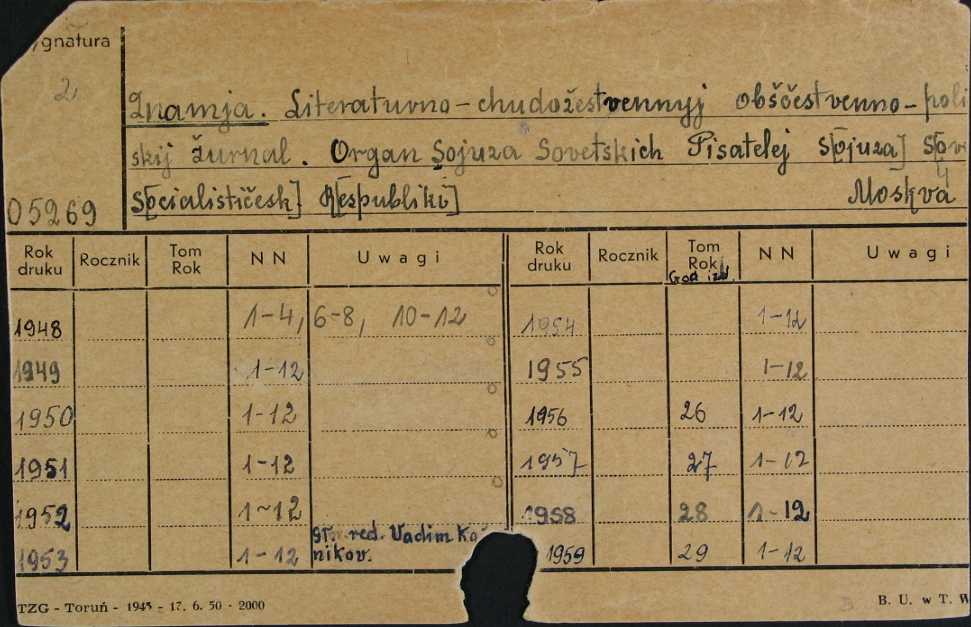 ygnatura
2
Znamja. Literaturno-chudožestvennyj obščestvenno-poli
skij žurnal. Organ Sojuza Sovetskich Pisatelej S[ojuza] S[ov
4
05269 S[ocialističesk] R[espubliki] Moskva
Rok druku Rocznik Tom Rok NN Uwagi Rok druku Rocznik Tom Rok God izd NN Uwagi
1948 1-4, 6-8, 10-12 1954 1-12
1949 1-12 1955 1-12
1950 1-12 1956 26 1-12
1951 1-12 1957 27 1-12
1952 1-12 1958 28 1-12
red. Vadim Ko
1953 1-12 nikov. 1959 29 1-12
TZG - Toruń - 1945 - 17. 6. 50 - 2000 B. U. w T. W